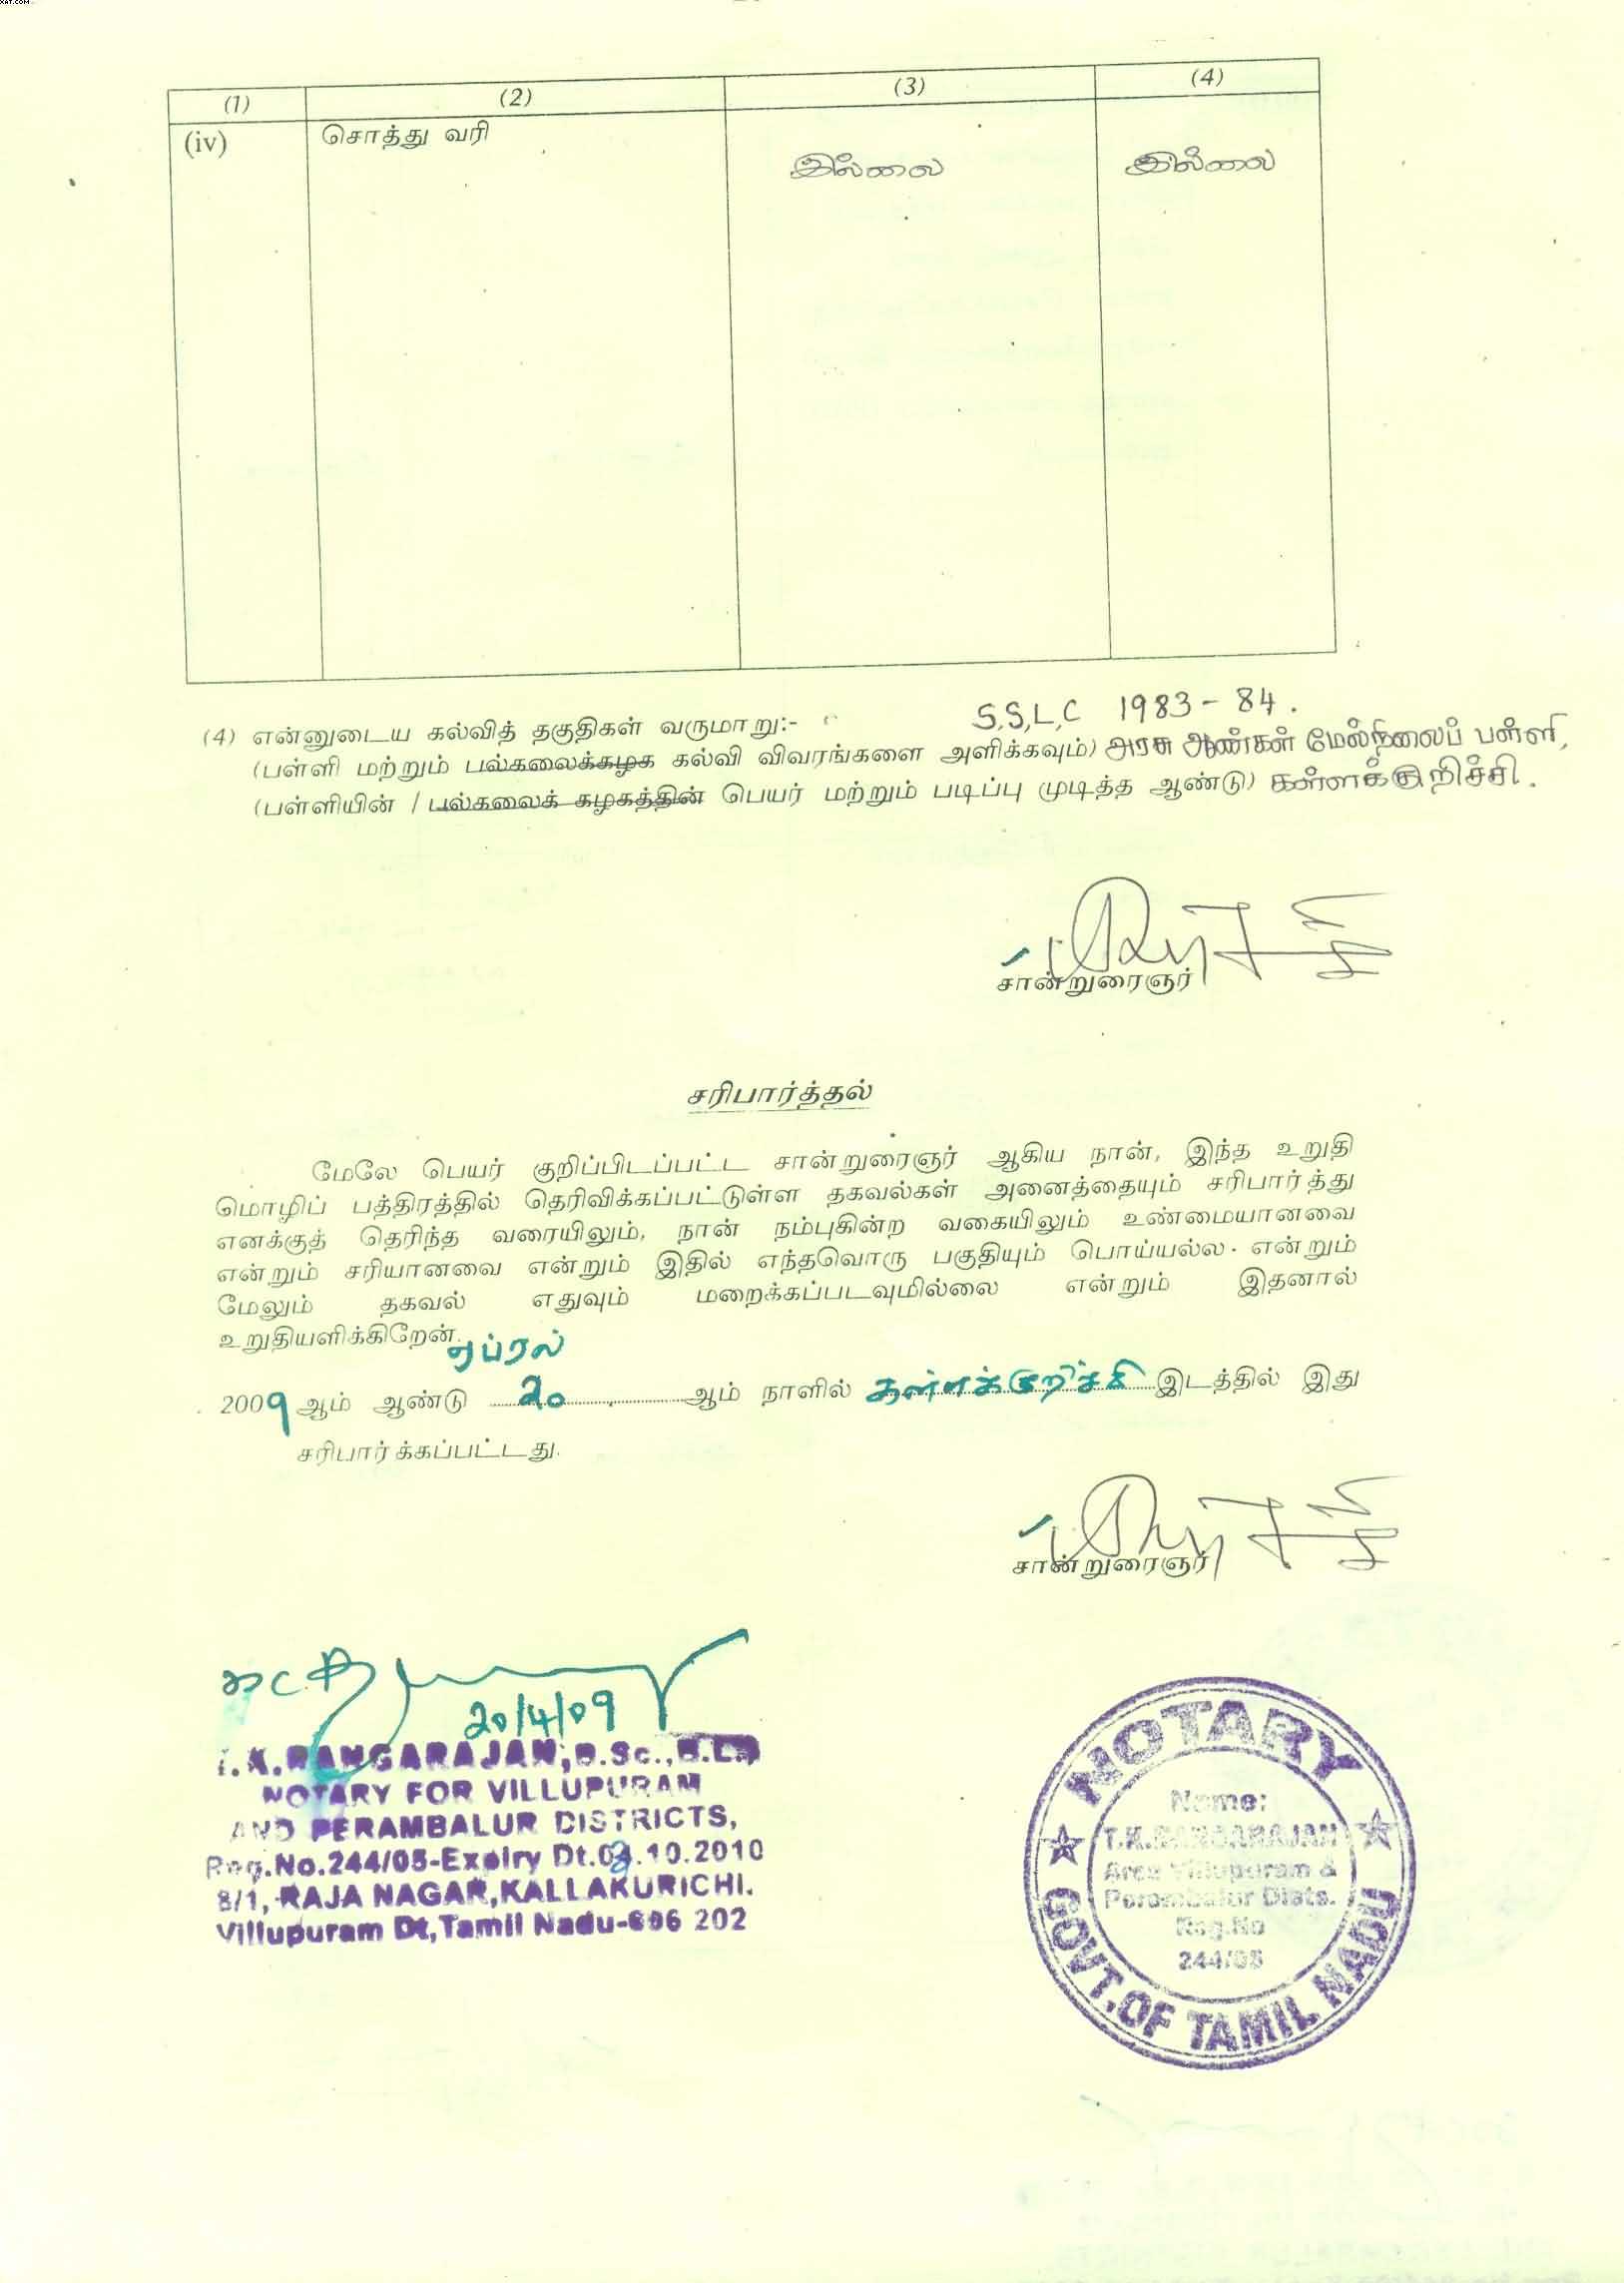 XAT.COM
(1) (2) (3) (4)
(iv) சொத்து வரி இல்லை இல்லை
S.S.L.C 1983 - 84.
(4) என்னுடைய கல்வித் தகுதிகள் வருமாறு:-
(பள்ளி மற்றும் பல்கலைக்கழக கல்வி விவரங்களை அளிக்கவும்) அரசு ஆண்கள் மேல்நிலைப் பள்ளி,
(பள்ளியின் / பல்கலைக் கழகத்தின் பெயர் மற்றும் படிப்பு முடித்த ஆண்டு) கள்ளக்குறிச்சி.
சான்றுரைஞர்
சரிபார்த்தல்
மேலே பெயர் குறிப்பிடப்பட்ட சான்றுரைஞர் ஆகிய நான், இந்த உறுதி
மொழிப் பத்திரத்தில் தெரிவிக்கப்பட்டுள்ள தகவல்கள் அனைத்தையும் சரிபார்த்து
எனக்குத் தெரிந்த வரையிலும், நான் நம்புகின்ற வகையிலும் உண்மையானவை
என்றும் சரியானவை என்றும் இதில் எந்தவொரு பகுதியும் பொய்யல்ல. என்றும்
மேலும் தகவல் எதுவும் மறைக்கப்படவுமில்லை என்றும் இதனால்
உறுதியளிக்கிறேன்.
ஏப்ரல்
2009 ஆம் ஆண்டு 20 ஆம் நாளில் கள்ளக்குறிச்சி இடத்தில் இது
சரிபார்க்கப்பட்டது.
சான்றுரைஞர்
20/4/09
T.K.RANGARAJAN,B.Sc.,B.L.,
NOTARY FOR VILLUPURAM
AND PERAMBALUR DISTRICTS,
Reg.No.244/05-Expiry Dt.03.10.2010
8/1, RAJA NAGAR,KALLAKURICHI.
Villupuram Dt,Tamil Nadu-606 202
NOTARY
Name:
T.K.RANGARAJAN
Area Villupuram &
Perambalur Dists.
Reg.No
244/05
GOVT.OF TAMIL NADU